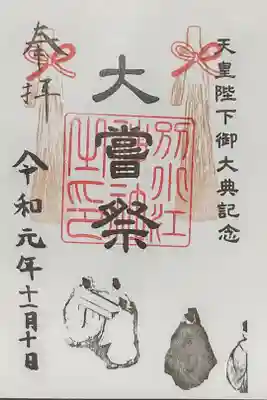 天皇陛下御大典記念
大嘗祭
別小江神社之印
奉拝
令和元年十一月十日